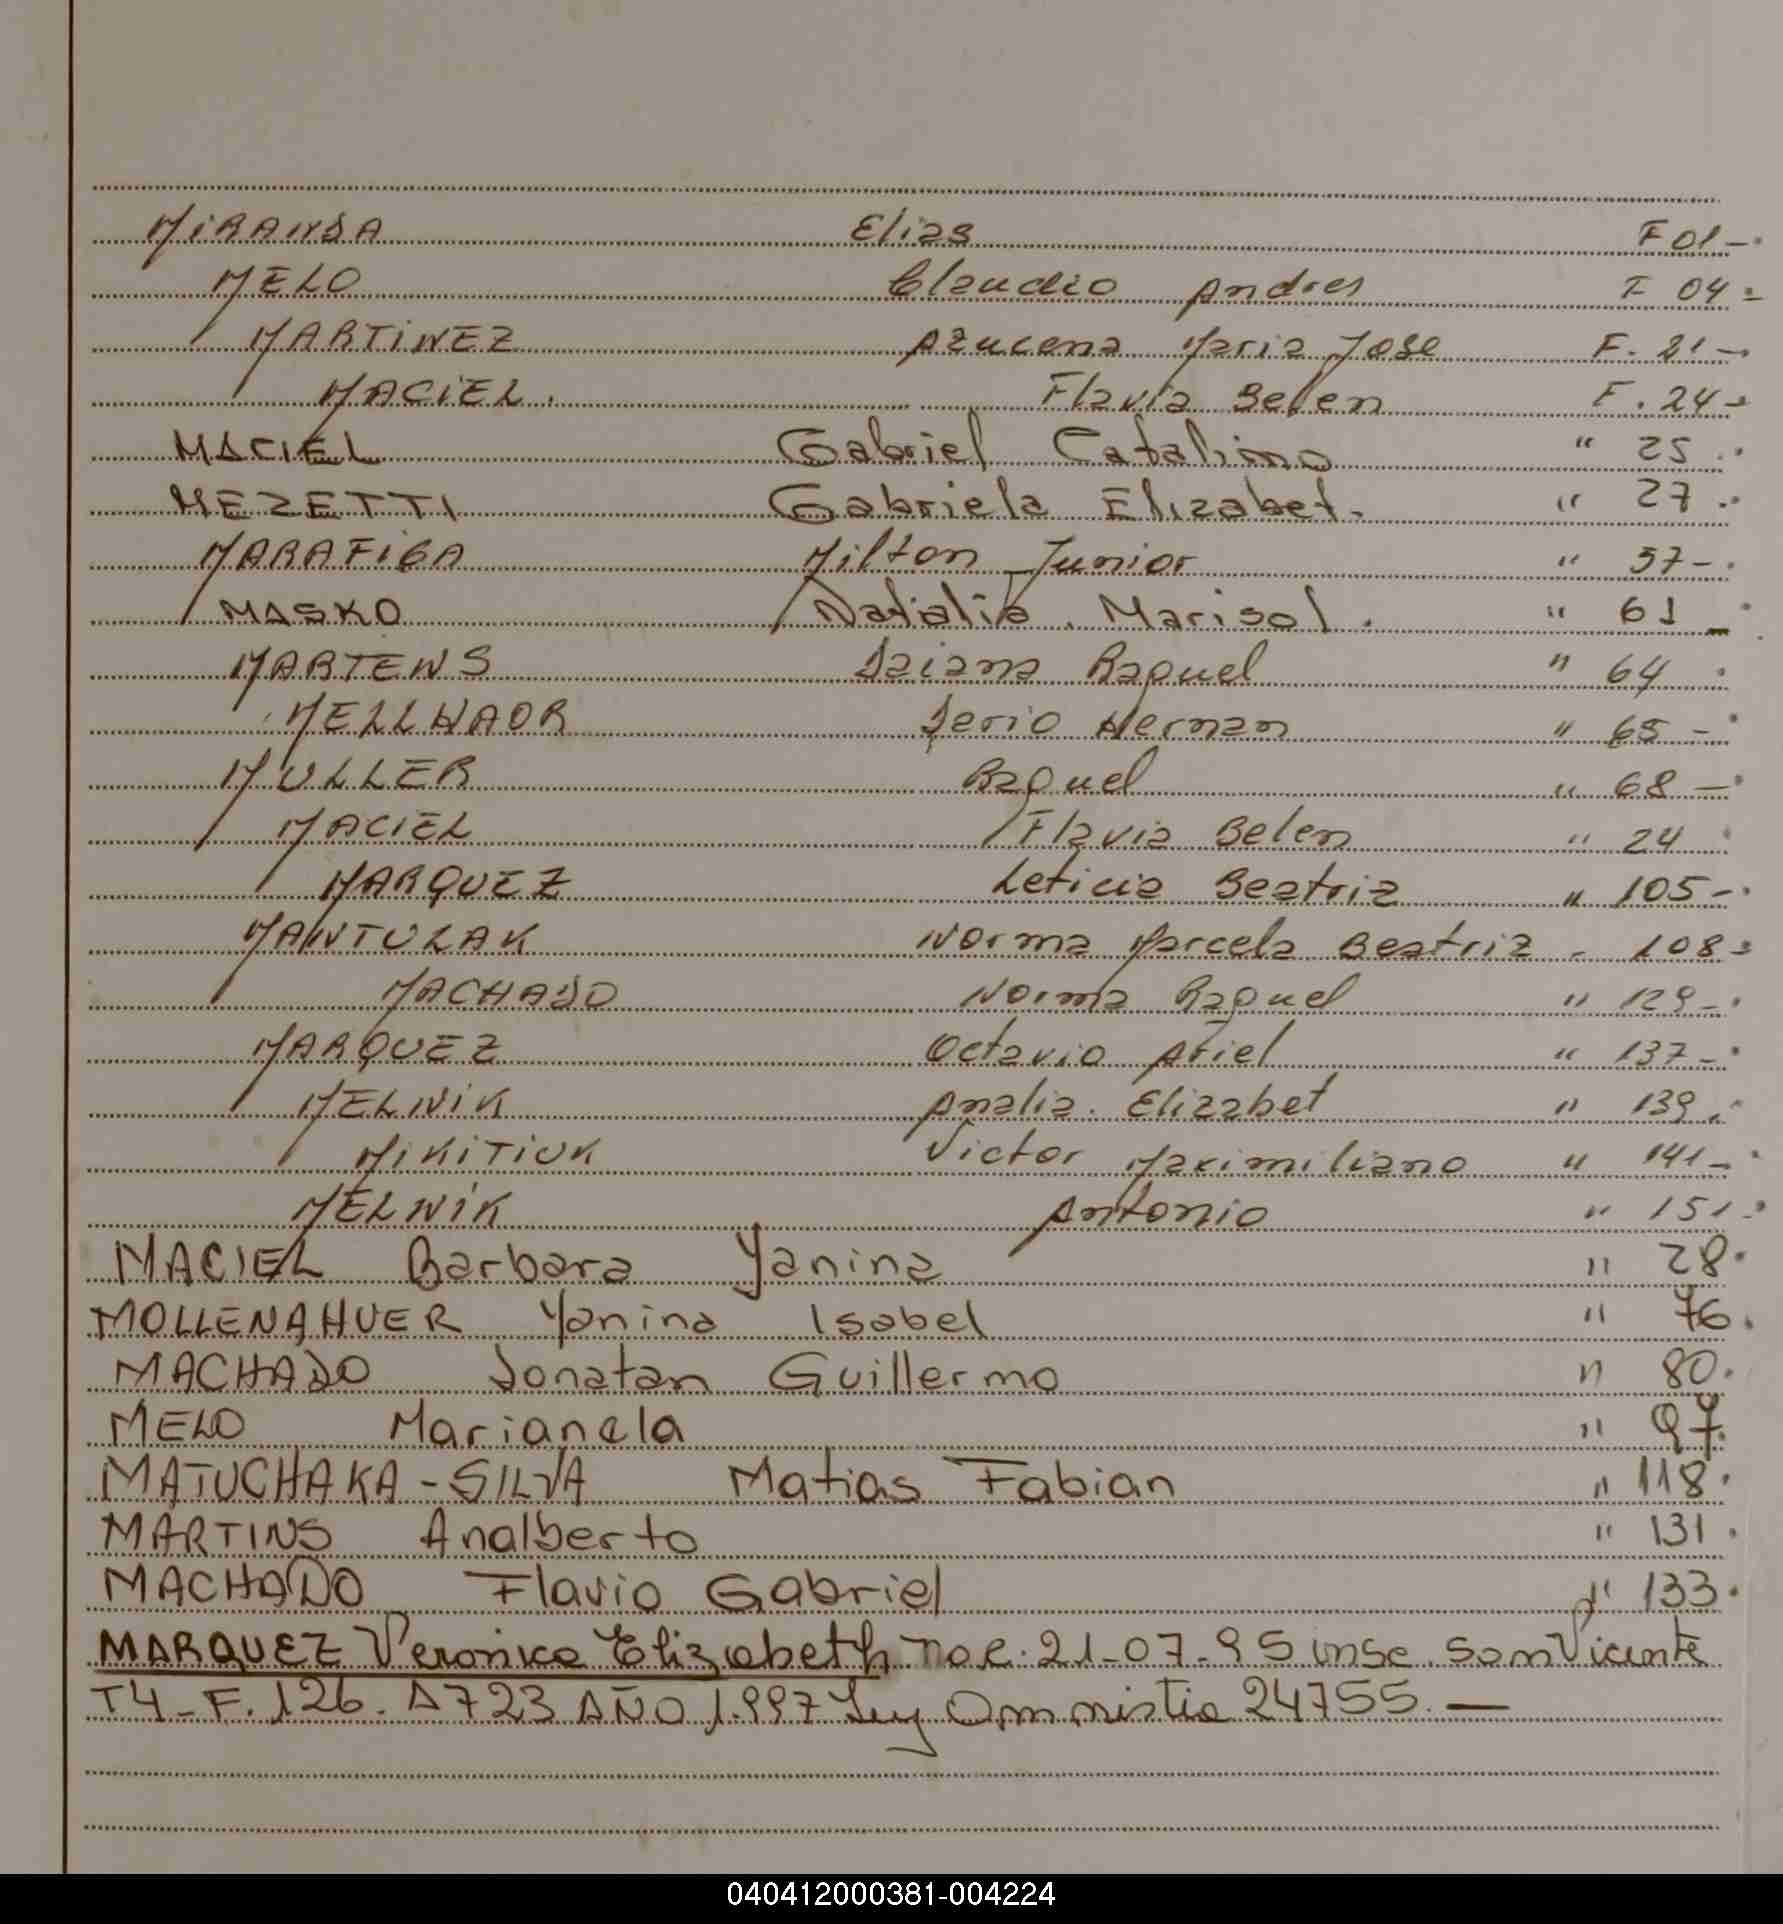 MIRANDA Elias F 01-.
MELO Claudio Andres F 04-
MARTINEZ Azucena Maria Jose F. 21-
MACIEL. Flavia Belen F. 24-
MACIEL Gabriel Catalino " 25.
MEZETTI Gabriela Elizabet. " 27.
MARAFIGA Milton Junior " 57-.
MASKO Natalia. Marisol. " 61-
MARTENS Daiana Raquel " 64
MELLNAOR Dario Hernan " 65-
MULLER Raquel " 68-
MACIEL Flavia Belen " 24
MARQUEZ Leticia Beatriz " 105-.
MANTULAK Norma Marcela Beatriz - 108-
MACHADO Norma Raquel " 129-.
MARQUEZ Octavio Ariel " 137-.
MELNIK Analia. Elizabet " 139.
MIKITIUK Victor Maximiliano " 141-.
MELNIK Antonio " 151.
MACIEL Barbara Yanina " 28.
MOLLENAHUER Yanina Isabel " 76.
MACHADO Jonatan Guillermo " 80.
MELO Marianela " 97.
MATUCHAKA-SILVA Matias Fabian " 118.
MARTINS Analberto " 131.
MACHADO Flavio Gabriel " 133.
MARQUEZ Veronica Elizabeth nac. 21-07-95 insc. San Vicente
T4-F.126. A723 AÑO 1.997 Ley Ammistia 24755.—
040412000381-004224